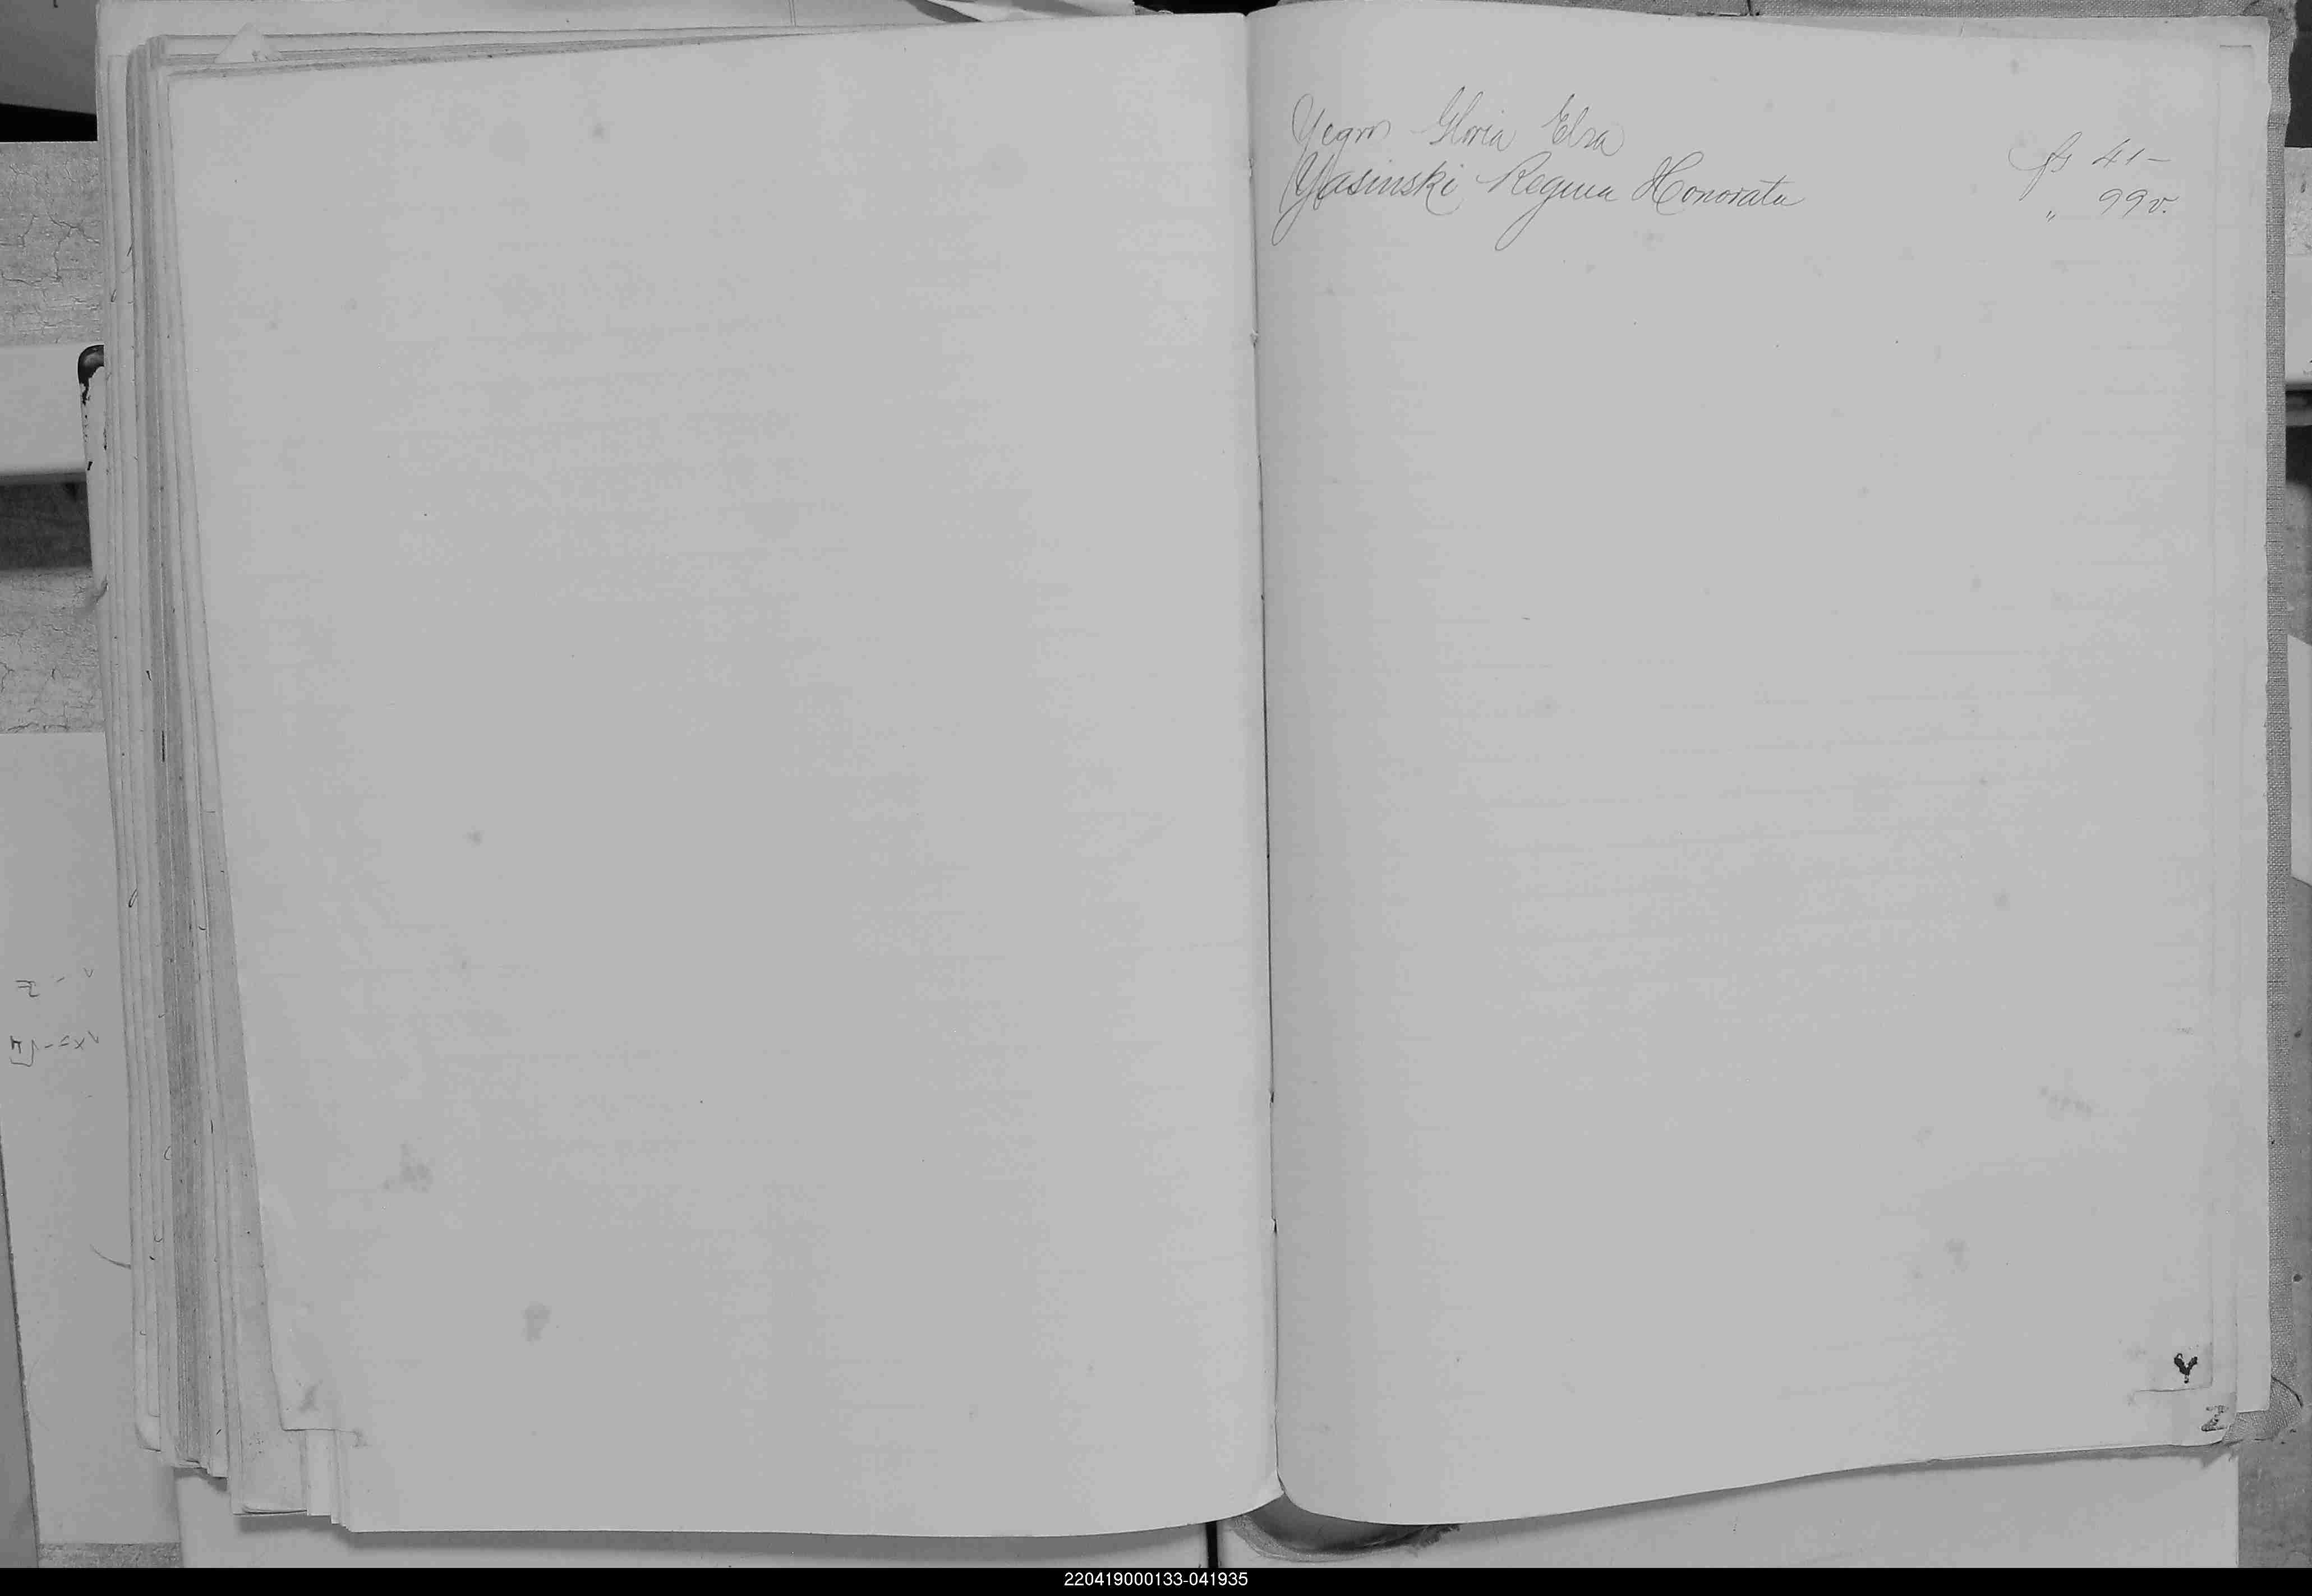 Yegros Gloria Elsa fs 41-
Yasinski Regina Honorata " 99v.
Y
Z
220419000133-041935